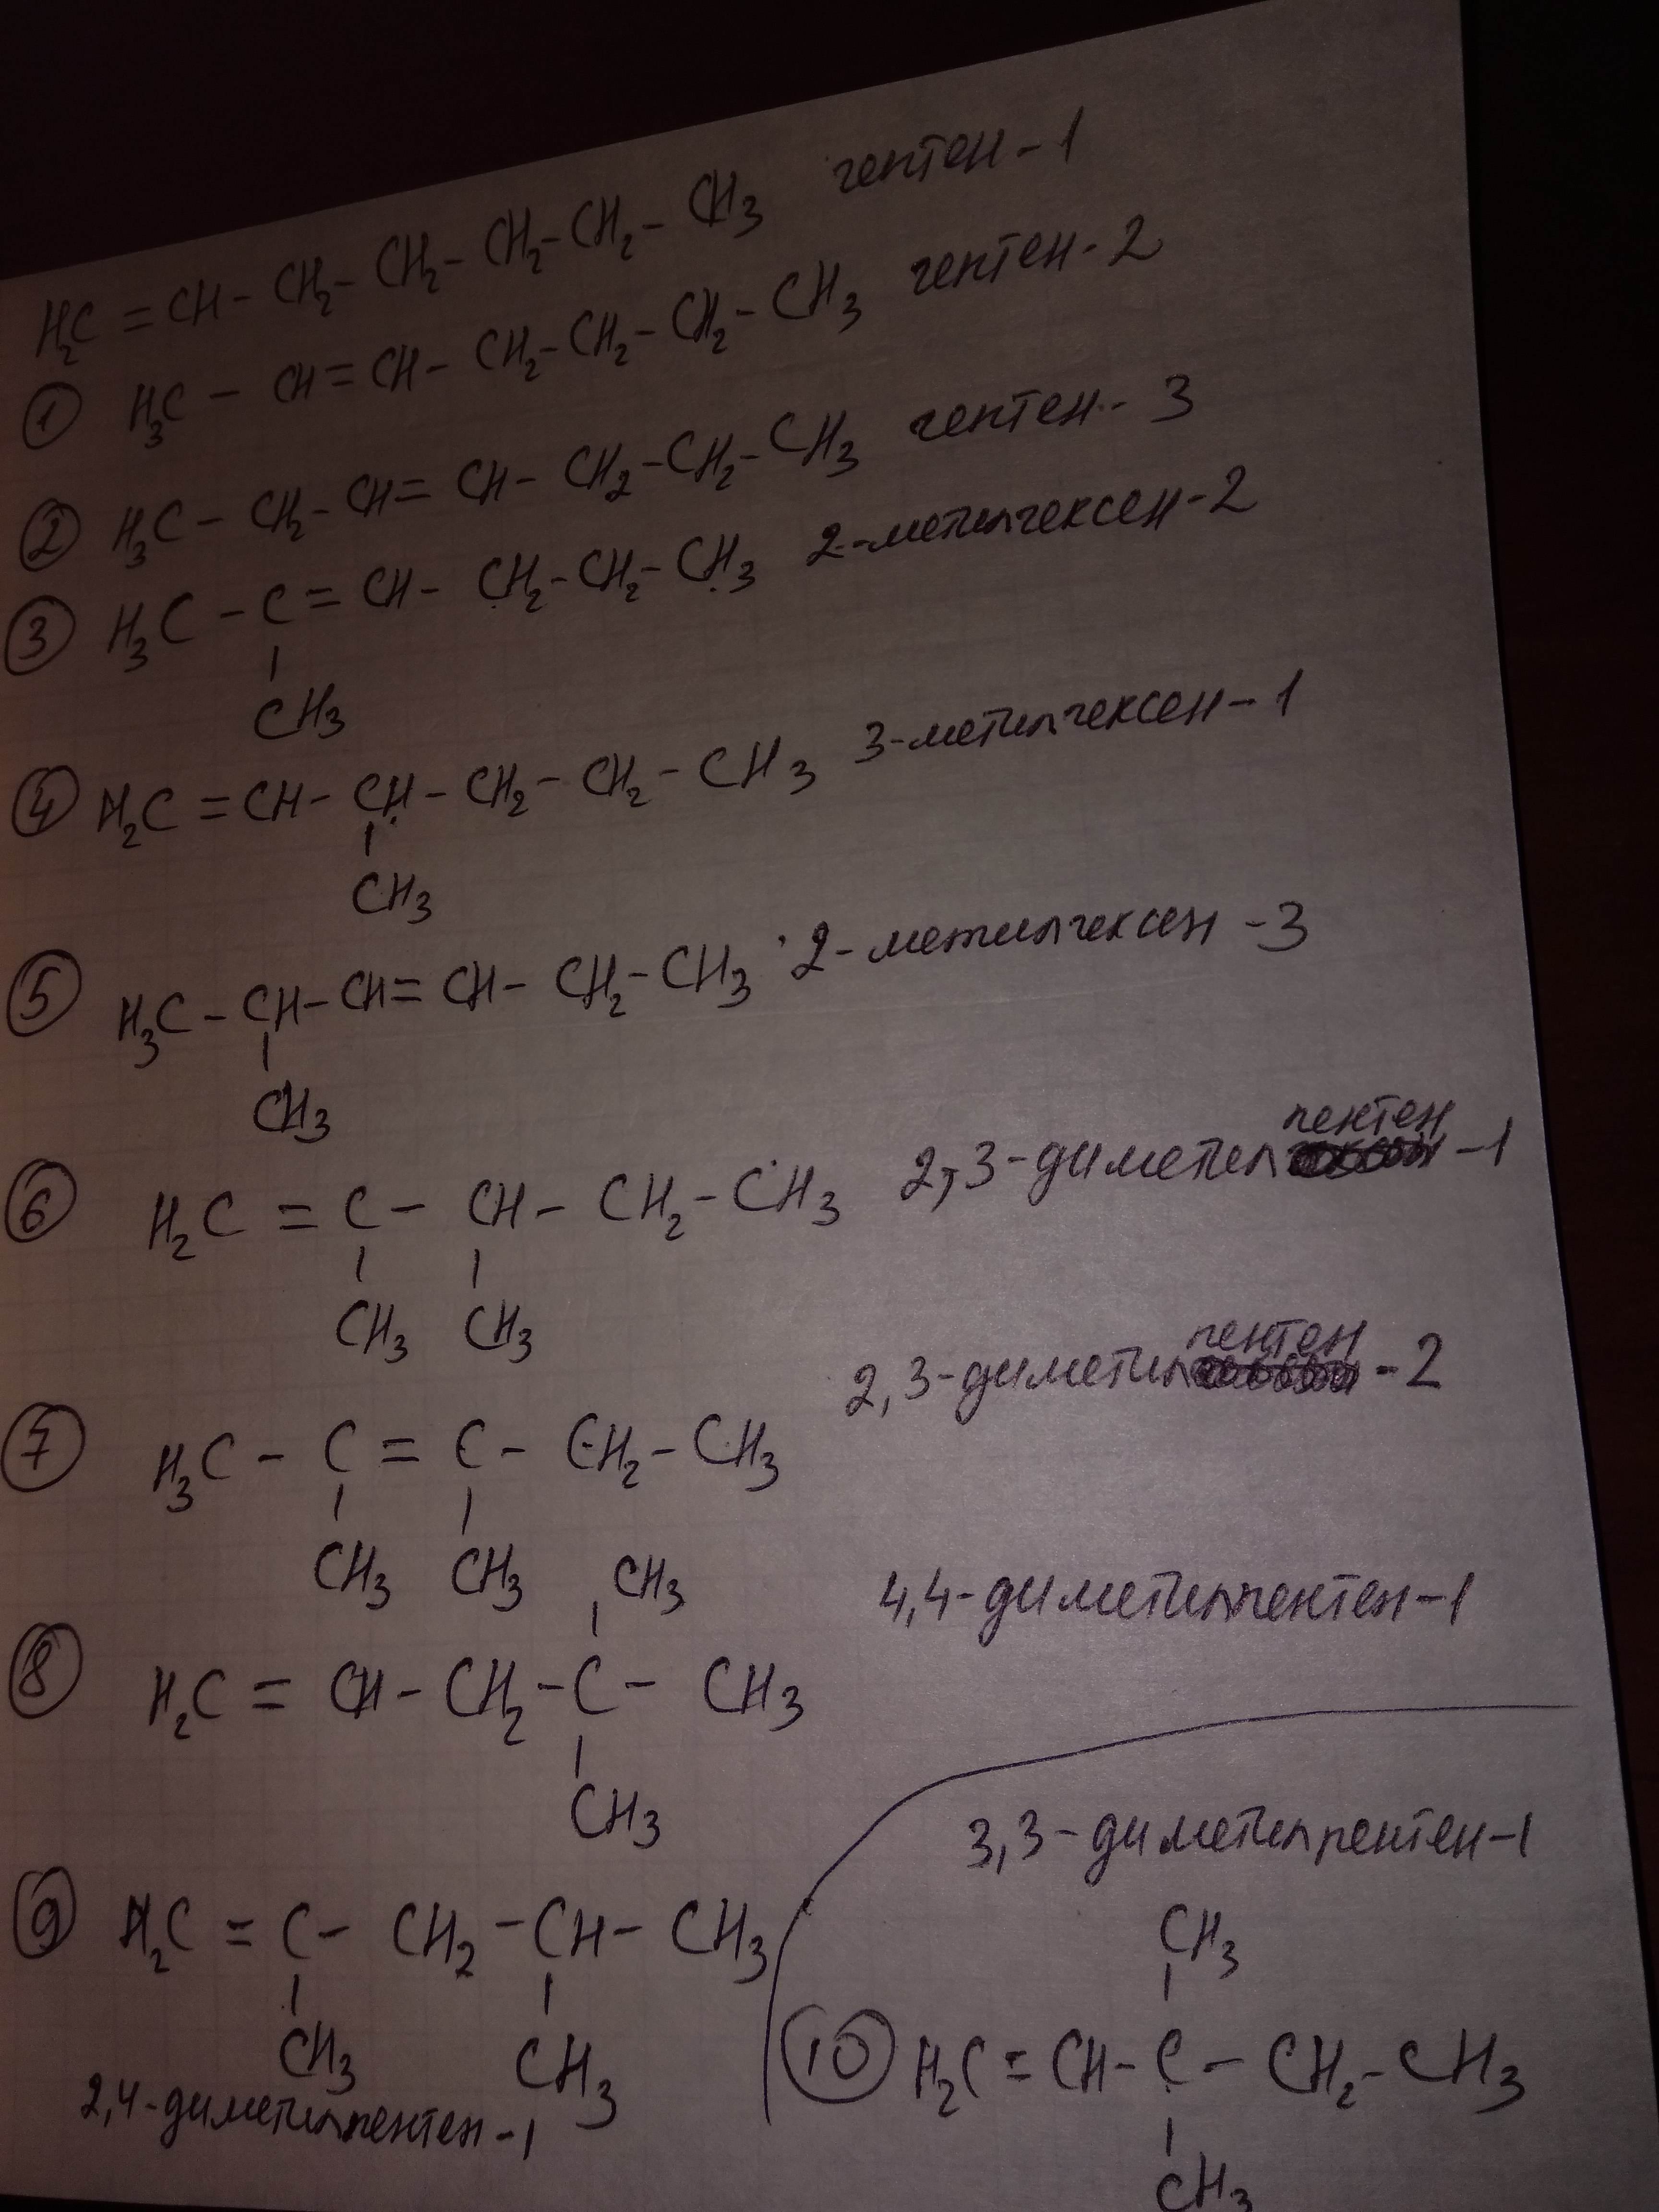 H₂C = CH - CH₂ - CH₂ - CH₂ - CH₂ - CH₃ гептен-1
① H₃C - CH = CH - CH₂ - CH₂ - CH₂ - CH₃ гептен-2
② H₃C - CH₂ - CH = CH - CH₂ - CH₂ - CH₃ гептен-3
③ H₃C - C = CH - CH₂ - CH₂ - CH₃ 2-метилгексен-2
CH₃
④ H₂C = CH - CH - CH₂ - CH₂ - CH₃ 3-метилгексен-1
CH₃
⑤ H₃C - CH - CH = CH - CH₂ - CH₃ 2-метилгексен-3
CH₃
⑥ H₂C = C - CH - CH₂ - CH₃ 2,3-диметилпентен-1
CH₃ CH₃
2,3-диметилпентен-2
⑦ H₃C - C = C - CH₂ - CH₃
CH₃ CH₃
CH₃ 4,4-диметилпентен-1
⑧ H₂C = CH - CH₂ - C - CH₃
CH₃
⑨ H₂C = C - CH₂ - CH - CH₃
CH₃ CH₃
2,4-диметилпентен-1
3,3-диметилпентен-1
CH₃
⑩ H₂C = CH - C - CH₂ - CH₃
CH₃